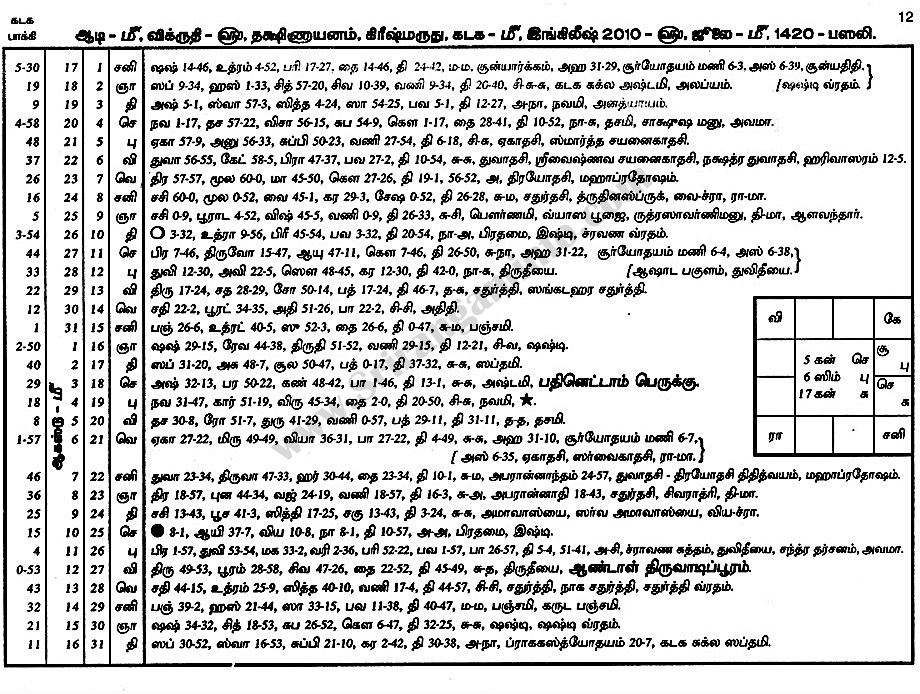 12
கடக
பாக்கி
ஆடி - மீ, விக்ருதி - ஹு, தக்ஷிணாயனம், கிரீஷ்மருது, கடக - மீ, இங்கிலீஷ் 2010 - ஹு, ஜூலை - மீ, 1420 - பஸலி.
5-30 17 1 சனி ஷஷ் 14-46, உத்ரம் 4-52, பரி 17-27, தை 14-46, தி 24-42, ம-ம, சூன்யார்க்கம், அஹ 31-29, சூர்யோதயம் மணி 6-3, அஸ் 6-39, சூன்யதிதி.
19 18 2 ஞா ஸப் 9-34, ஹஸ் 1-33, சித் 57-20, சிவ 10-39, வணி 9-34, தி 20-40, சி-சு-சு, கடக சுக்ல அஷ்டமி, அலப்யம். [ஷஷ்டி வ்ரதம்.
9 19 3 தி அஷ் 5-1, ஸ்வா 57-3, ஸித்த 4-24, ஸா 54-25, பவ 5-1, தி 12-27, அ-நா, நவமி, அனத்யாயம்.
4-58 20 4 செ நவ 1-17, தச 57-22, விசா 56-15, சுப 54-9, கௌ 1-17, தை 28-41, தி 10-52, நா-சு, தசமி, சாக்ஷுஷ மனு, அவமா.
48 21 5 பு ஏகா 57-9, அனு 56-33, சுப்பி 50-23, வணி 27-54, தி 6-18, சி-சு, ஏகாதசி, ஸ்மார்த்த சயனைகாதசி.
37 22 6 வி துவா 56-55, கேட் 58-5, பிரா 47-37, பவ 27-2, தி 10-54, சு-சு, துவாதசி, ஸ்ரீவைஷ்ணவ சயனைகாதசி, நக்ஷத்ர துவாதசி, ஹரிவாஸரம் 12-5.
26 23 7 வெ திர 57-57, மூல 60-0, மா 45-50, கௌ 27-26, தி 19-1, 56-52, அ, திரயோதசி, மஹாப்ரதோஷம்.
16 24 8 சனி சசி 60-0, மூல 0-52, வை 45-1, கர 29-3, சேஷ 0-52, தி 26-28, சு-ம, சதுர்தசி, த்ருதினஸ்ப்ருக், வை-ச்ரா, ரா-மா.
5 25 9 ஞா சசி 0-9, பூராட 4-52, விஷ் 45-5, வணி 0-9, தி 26-33, சு-சி, பௌர்ணமி, வ்யாஸ பூஜை, ருத்ரஸாவர்ணிமனு, தி-மா, ஆளவந்தார்.
3-54 26 10 தி O 3-32, உத்ரா 9-56, பிரீ 45-54, பவ 3-32, தி 20-54, நா-அ, பிரதமை, இஷ்டி, ச்ரவண வ்ரதம்.
44 27 11 செ பிர 7-46, திருவோ 15-47, ஆயு 47-11, கௌ 7-46, தி 26-50, சு-நா, அஹ 31-22, சூர்யோதயம் மணி 6-4, அஸ் 6-38,
33 28 12 பு துவி 12-30, அவி 22-5, ஸௌ 48-45, கர 12-30, தி 42-0, நா-சு, திருதீயை. [ஆஷாட பகுளம், துவிதீயை.
22 29 13 வி திரு 17-24, சத 28-29, சோ 50-14, பத் 17-24, தி 46-7, த-சு, சதுர்த்தி, ஸங்கடஹர சதுர்த்தி.
12 30 14 வெ சதி 22-2, பூரட் 34-35, அதி 51-26, பா 22-2, சி-சி, அதிதி.
1 31 15 சனி பஞ் 26-6, உத்ரட் 40-5, ஸு 52-3, தை 26-6, தி 0-47, சு-ம, பஞ்சமி.
ஆகஸ்டு - மீ
2-50 1 16 ஞா ஷஷ் 29-15, ரேவ 44-38, திருதி 51-52, வணி 29-15, தி 12-21, சி-வ, ஷஷ்டி.
40 2 17 தி ஸப் 31-20, அசு 48-7, சூல 50-47, பத் 0-17, தி 37-32, சு-சு, ஸப்தமி.
29 3 18 செ அஷ் 32-13, பர 50-22, கண் 48-42, பா 1-46, தி 13-1, சு-சு, அஷ்டமி, பதினெட்டாம் பெருக்கு.
18 4 19 பு நவ 31-47, கார் 51-19, விரு 45-34, தை 2-0, தி 20-50, சி-சு, நவமி, ★.
8 5 20 வி தச 30-8, ரோ 51-7, துரு 41-29, வணி 0-57, பத் 29-11, தி 31-11, த-த, தசமி.
1-57 6 21 வெ ஏகா 27-22, மிரு 49-49, வியா 36-31, பா 27-22, தி 4-49, சு-சு, அஹ 31-10, சூர்யோதயம் மணி 6-7,
[அஸ் 6-35, ஏகாதசி, ஸர்வைகாதசி, ரா-மா.
46 7 22 சனி துவா 23-34, திருவா 47-33, ஹர் 30-44, தை 23-34, தி 10-1, சு-ம, அபரான்னாந்தம் 24-57, துவாதசி - திரயோதசி திதித்வயம், மஹாப்ரதோஷம்.
36 8 23 ஞா திர 18-57, புன 44-34, வஜ் 24-19, வணி 18-57, தி 16-3, சு-அ, அபரான்னாதி 18-43, சதுர்தசி, சிவராத்ரி, தி-மா.
25 9 24 தி சசி 13-43, பூச 41-3, ஸித்தி 17-25, சகு 13-43, தி 3-24, சு-சு, அமாவாஸ்யை, ஸர்வ அமாவாஸ்யை, விய-ச்ரா.
15 10 25 செ ● 8-1, ஆயி 37-7, விய 10-8, நா 8-1, தி 10-57, அ-அ, பிரதமை, இஷ்டி.
4 11 26 பு பிர 1-57, துவி 53-54, மக 33-2, வரி 2-36, பரி 52-22, பவ 1-57, பா 26-57, தி 5-4, 51-41, அ-சி, ச்ராவண சுத்தம், துவிதீயை, சந்த்ர தர்சனம், அவமா.
0-53 12 27 வி திரு 49-53, பூரம் 28-58, சிவ 47-26, தை 22-52, தி 45-49, சு-த, திருதீயை, ஆண்டாள் திருவாடிப்பூரம்.
43 13 28 வெ சதி 44-15, உத்ரம் 25-9, ஸித்த 40-10, வணி 17-4, தி 44-57, சி-சி, சதுர்த்தி, நாக சதுர்த்தி, சதுர்த்தி வ்ரதம்.
32 14 29 சனி பஞ் 39-2, ஹஸ் 21-44, ஸா 33-15, பவ 11-38, தி 40-47, ம-ம, பஞ்சமி, கருட பஞ்சமி.
21 15 30 ஞா ஷஷ் 34-32, சித் 18-53, சுப 26-52, கௌ 6-47, தி 32-25, சு-சு, ஷஷ்டி, ஷஷ்டி வ்ரதம்.
11 16 31 தி ஸப் 30-52, ஸ்வா 16-53, சுப்பி 21-10, கர 2-42, தி 30-38, அ-நா, ப்ராகஸ்த்யோதயம் 20-7, கடக சுக்ல ஸப்தமி.
வி கே
5 கன் செ
6 ஸிம் பு
17 கன் சு
சூ பு
செ சு
ரா சனி